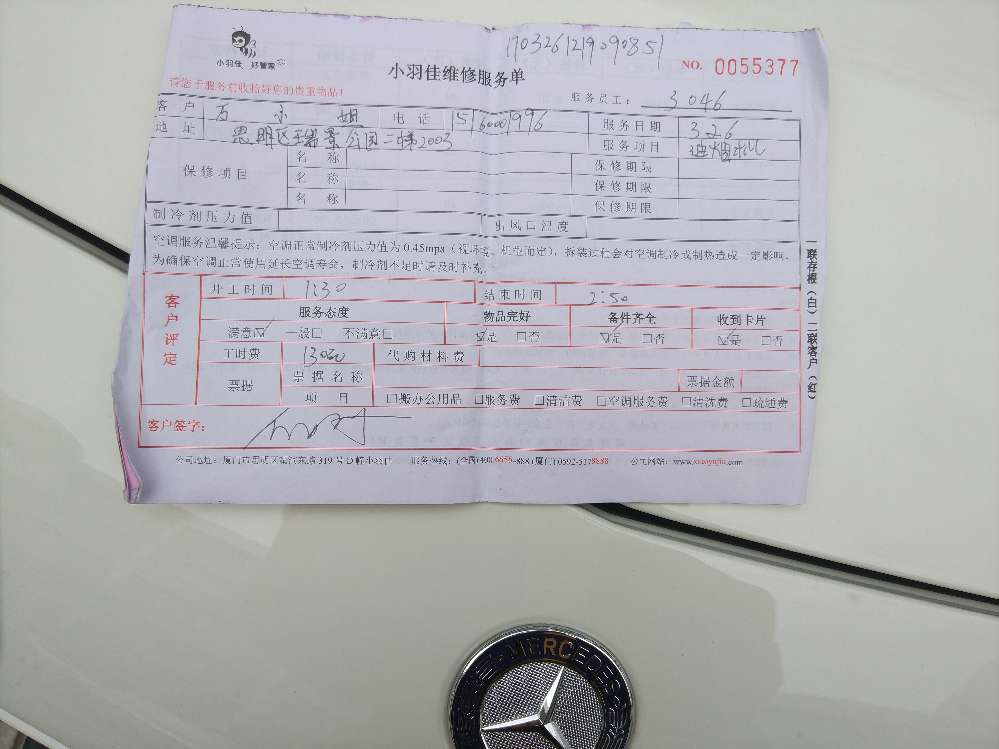 1703261219090851
小羽佳 好管家
小羽佳维修服务单
NO. 0055377
请您于服务前收拾好您的贵重物品!
服务员工: 3046
客户 万小姐 电话 服务日期 326
地址 思明区瑞景公园二梯2003 服务项目 油烟机
保修项目 名称 保修期限
名称 保修期限
名称 保修期限
制冷剂压力值 出风口温度
空调服务温馨提示: 空调正常制冷剂压力值为0.45mpa(视环境、机型而定), 拆装过程会对空调制冷或制热造成一定影响,
为确保空调正常使用延长空调寿命, 制冷剂不足时请及时补充。
客户评定
开工时间 1:30 结束时间 2:50
服务态度 物品完好 备件齐全 收到卡片
满意☑ 一般□ 不满意□ ☑是 □否 ☑是 □否 ☑是 □否
工时费 代购材料费
票据 票据名称 票据金额
项目 □搬办公用品 □服务费 □清洁费 □空调服务费 □清洗费 □疏通费
客户签字:
公司网站: www.xiaoyujia.com
一联存根(白) 二联客户(红)
MERCEDES